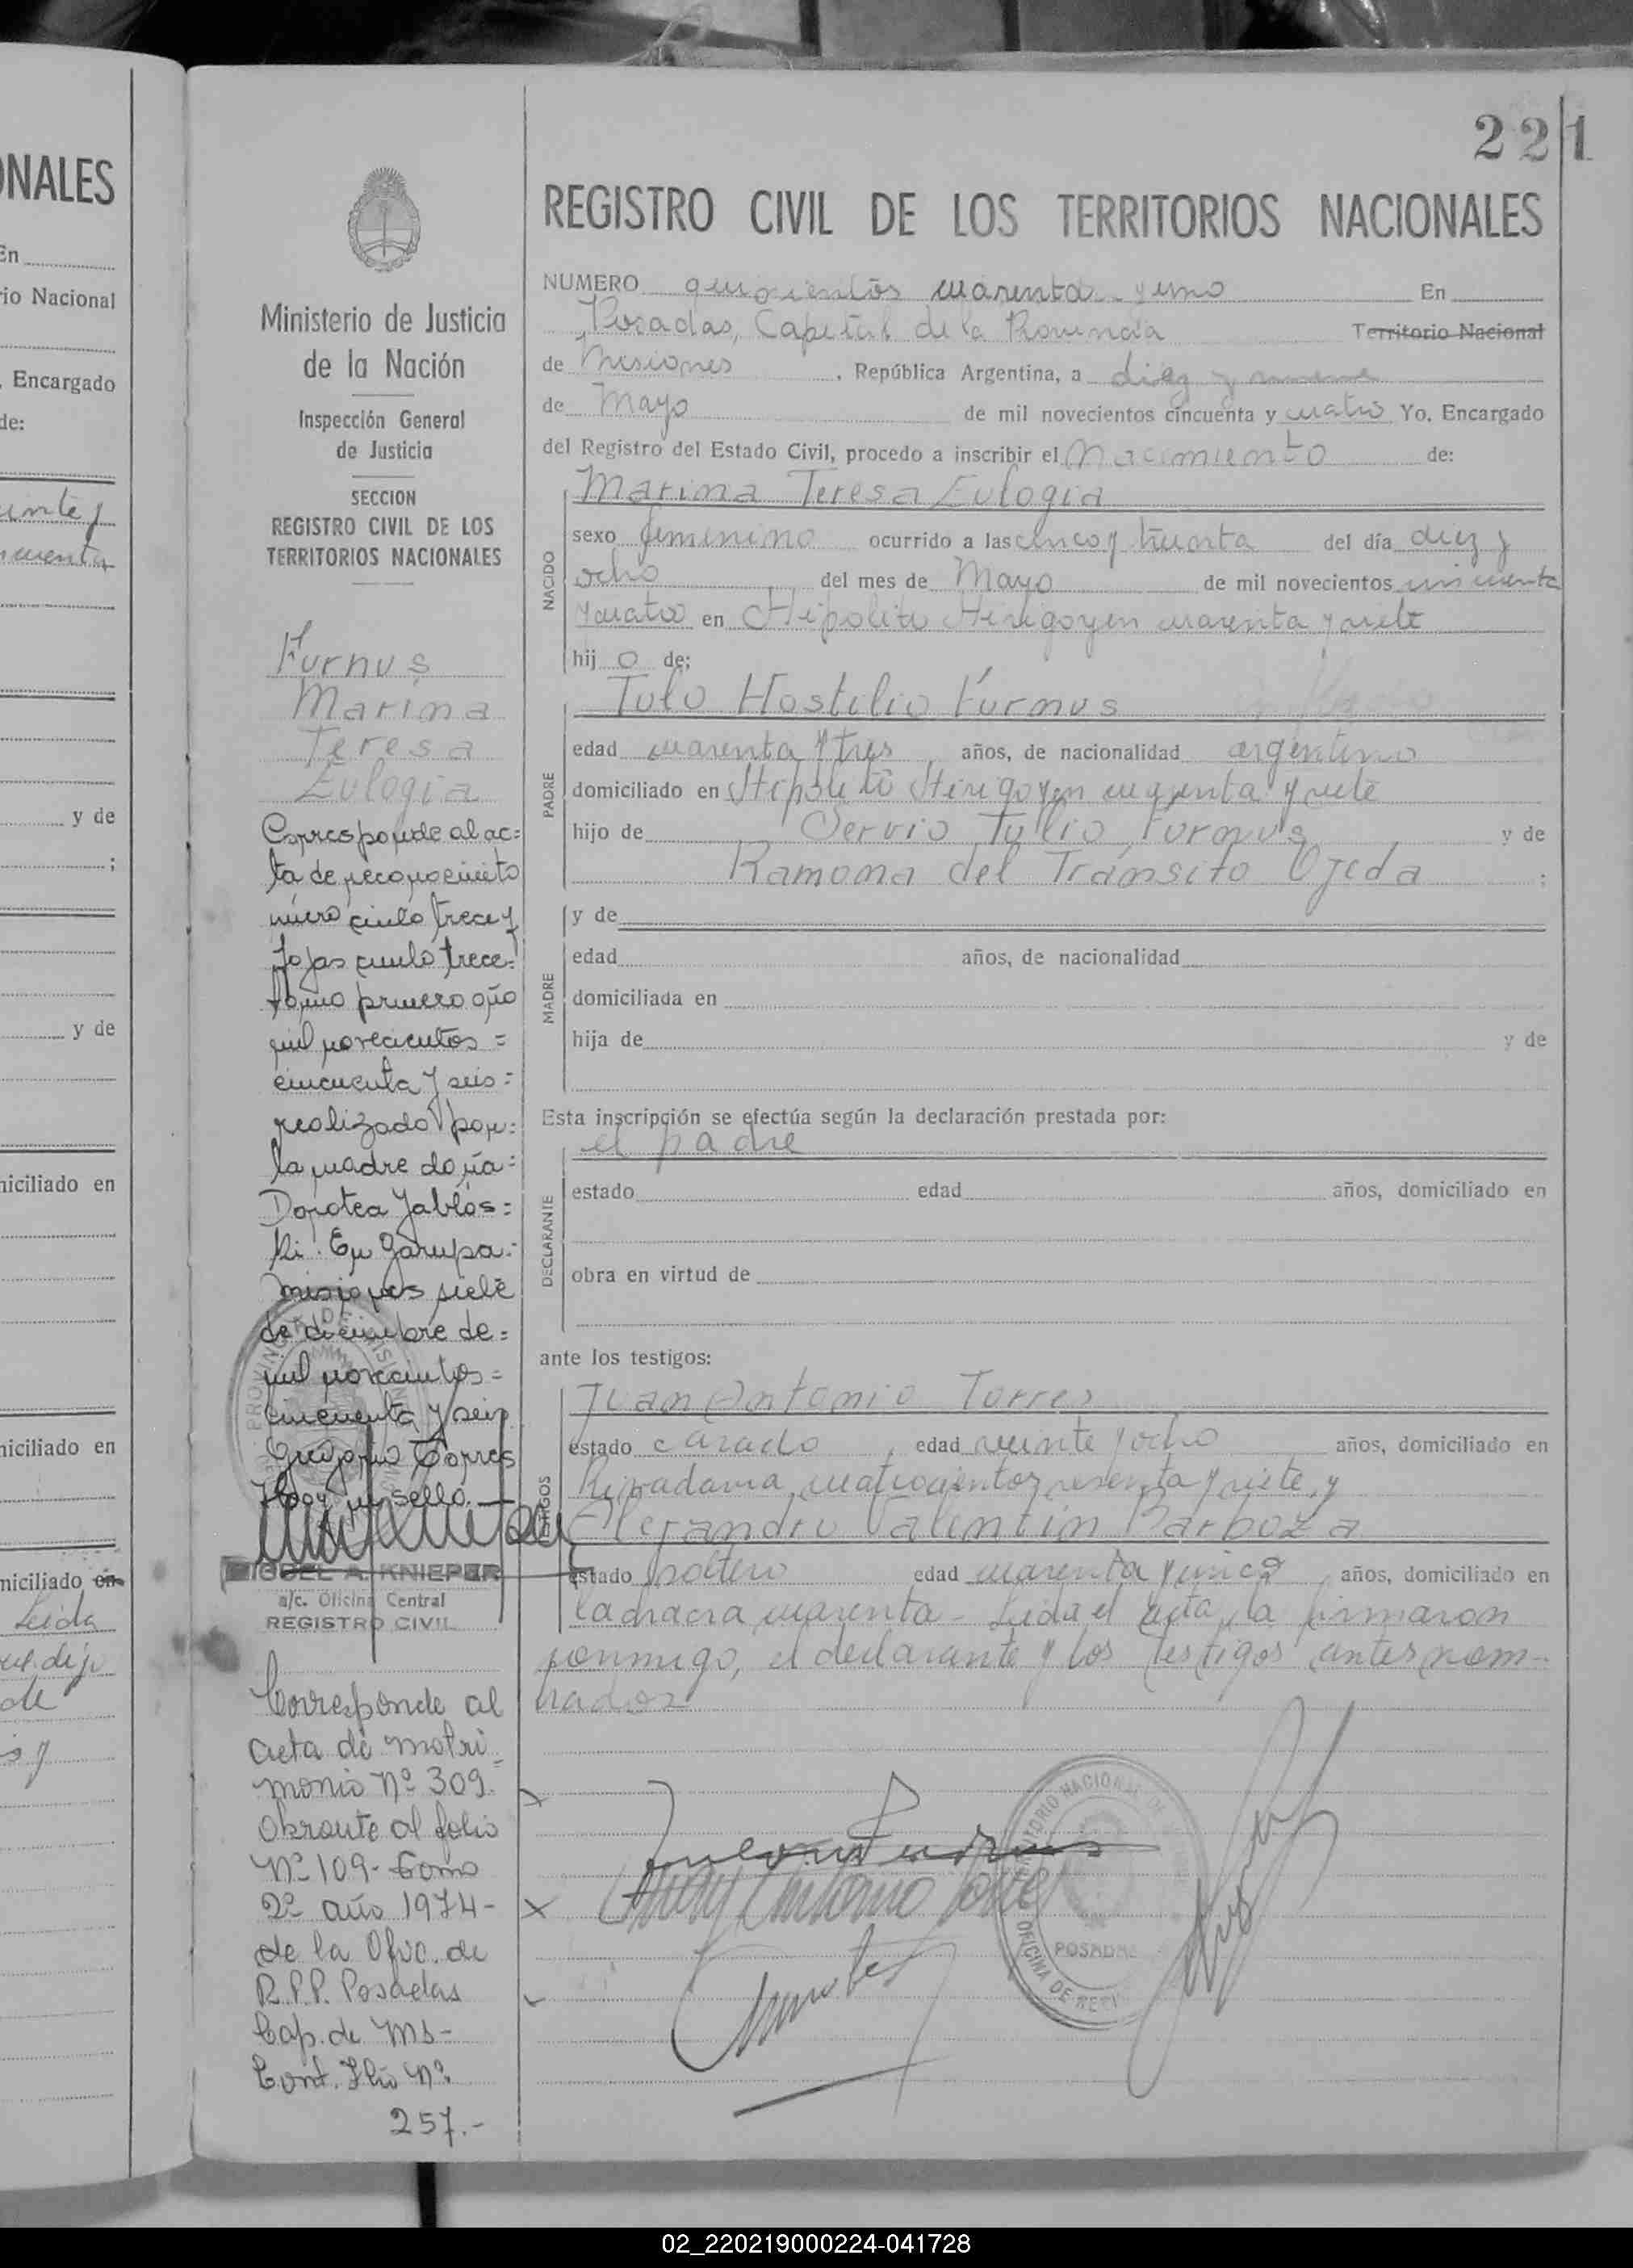 NALES
En
rio Nacional
, Encargado
de:
y de
;
y de
niciliado en
niciliado en
niciliado en
Leida
de
221
REGISTRO CIVIL DE LOS TERRITORIOS NACIONALES
Ministerio de Justicia
de la Nación
Inspección General
de Justicia
SECCION
REGISTRO CIVIL DE LOS
TERRITORIOS NACIONALES
Furnus
Marina
Teresa
Eulogia
Corresponde al ac=
ta de reconocimiento
número ciento trece y
fojas ciento trece-
tomo primero año
mil novecientos =
cincuenta y seis =
realizado por =
la madre doña =
Dorotea Jablós=
ki. En Garupa-
misiones siete
de diciembre de =
mil novecientos =
cincuenta y seis
Gregorio Torres
Hay un sello.
MIGUEL A. KNIEPER
a/c. Oficina Central
REGISTRO CIVIL
Corresponde al
acta de matri=
monio Nº 309.
Obrante al folio
Nº 109- tomo
2º año 1974-
de la Ofic. de
R.P.P. Posadas
Cap. de Ms-
Cont. Flio Nº
257.-
NUMERO quinientos cuarenta y uno En
Posadas, Capital de la Provincia Territorio Nacional
de Misiones , República Argentina, a diez y nueve
de Mayo de mil novecientos cincuenta y cuatro Yo, Encargado
del Registro del Estado Civil, procedo a inscribir el nacimiento de:
NACIDO
Marina Teresa Eulogia
sexo femenino ocurrido a las cinco y treinta del día diez y
ocho del mes de Mayo de mil novecientos cincuenta
y cuatro en Hipolito Hirigoyen cuarenta y siete
hij o de;
PADRE
Tulo Hostilio Furnus
edad cuarenta y tres , años, de nacionalidad argentino
domiciliado en Hipolito Hirigoyen cuarenta y siete
hijo de Servio Tulio Furnus y de
Ramona del Tránsito Ojeda ;
MADRE
y de
edad años, de nacionalidad
domiciliada en
hija de y de
Esta inscripción se efectúa según la declaración prestada por:
DECLARANTE
el padre
estado edad años, domiciliado en
obra en virtud de
ante los testigos:
TESTIGOS
Juan Antonio Torres
estado casado , edad veinte y ocho años, domiciliado en
Rivadavia cuatrocientos sesenta y siete, y
Alejandro Valentin Barboza
estado soltero edad cuarenta y cinco , años, domiciliado en
la chacra cuarenta - Leida el acta, la firmaron
conmigo, el declarante y los testigos antes nom-
brados
Juan Antonio Torres
TERRITORIO NACIONAL DE
POSADAS
OFICINA DE REGI
02_220219000224-041728